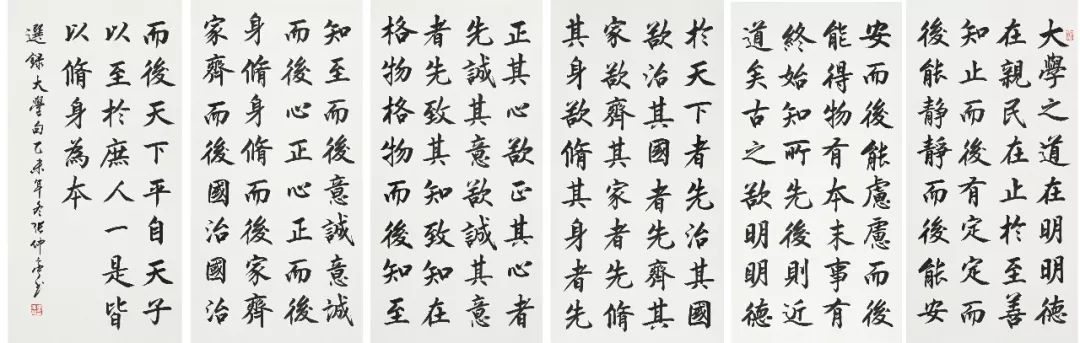 大學之道在明明德
在親民在止於至善
知止而後有定定而
後能静静而後能安
安而後能慮慮而後
能得物有本末事有
終始知所先後則近
道矣古之欲明明德
於天下者先治其國
欲治其國者先齊其
家欲齊其家者先脩
其身欲脩其身者先
正其心欲正其心者
先誠其意欲誠其意
者先致其知致知在
格物格物而後知至
知至而後意誠意誠
而後心正心正而後
身脩身脩而後家齊
家齊而後國治國治
而後天下平自天子
以至於庶人一是皆
以脩身為本
選錄大學句乙未年冬張仲亭書